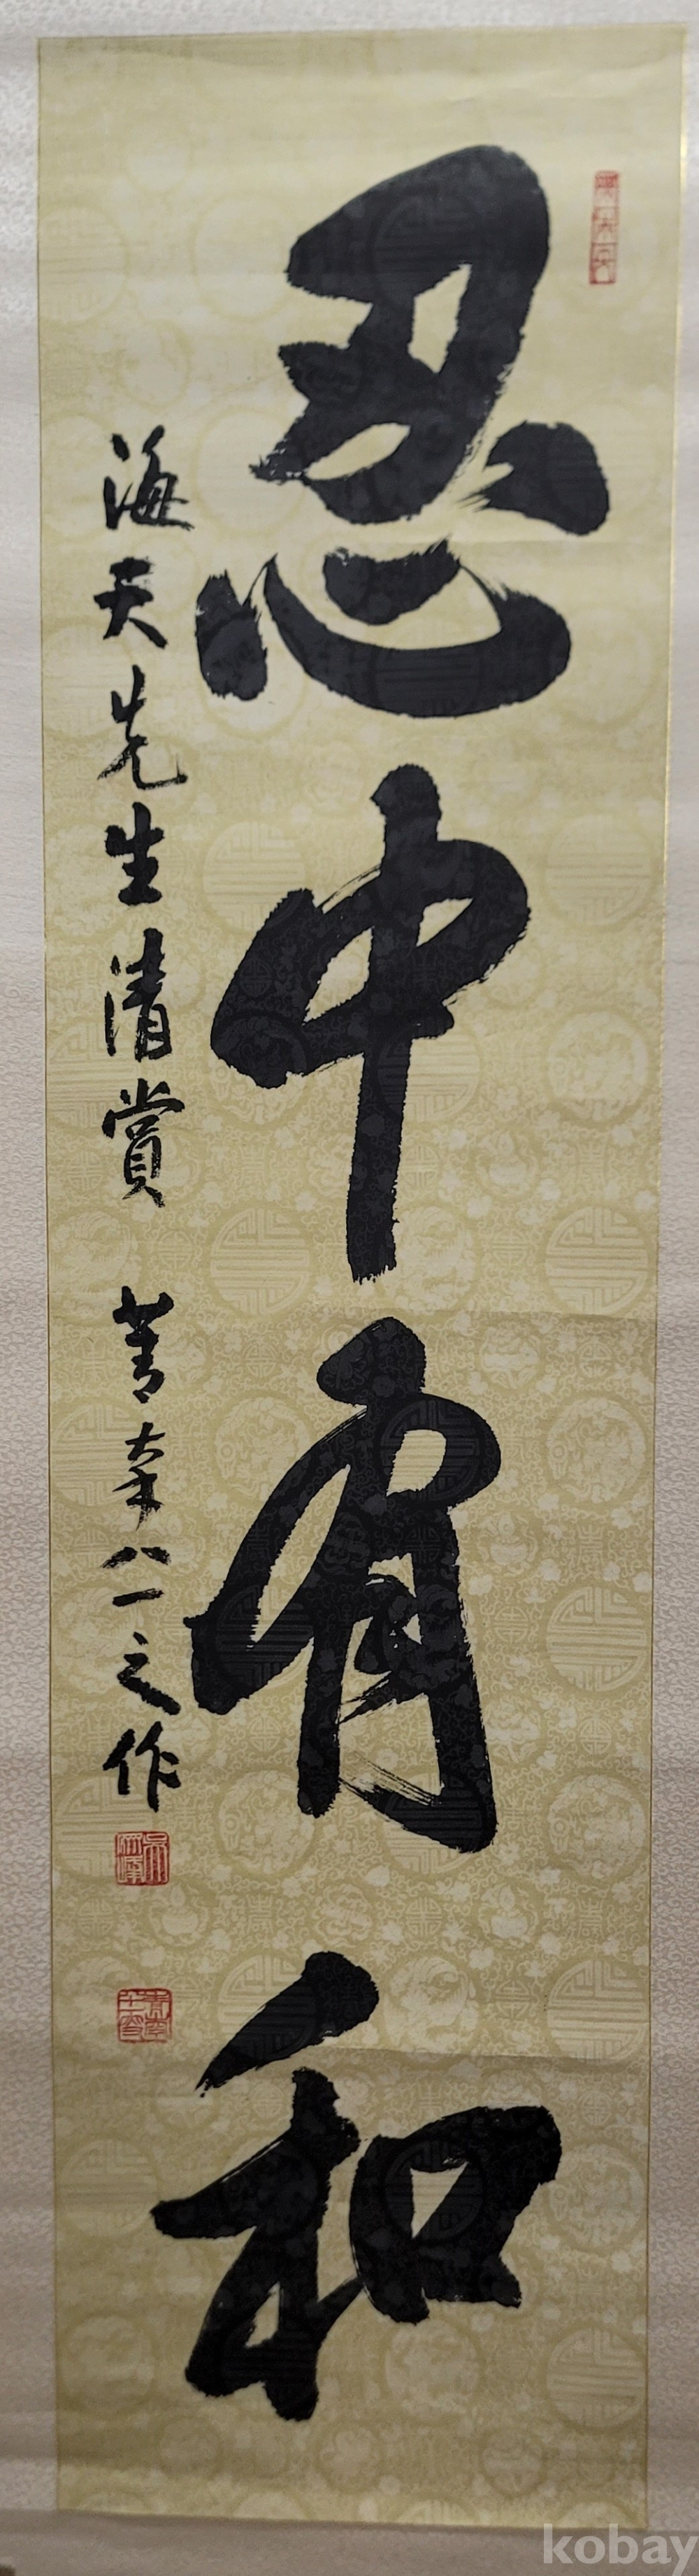 忍中有和
海天先生清賞 菁牽八一之作
kobay